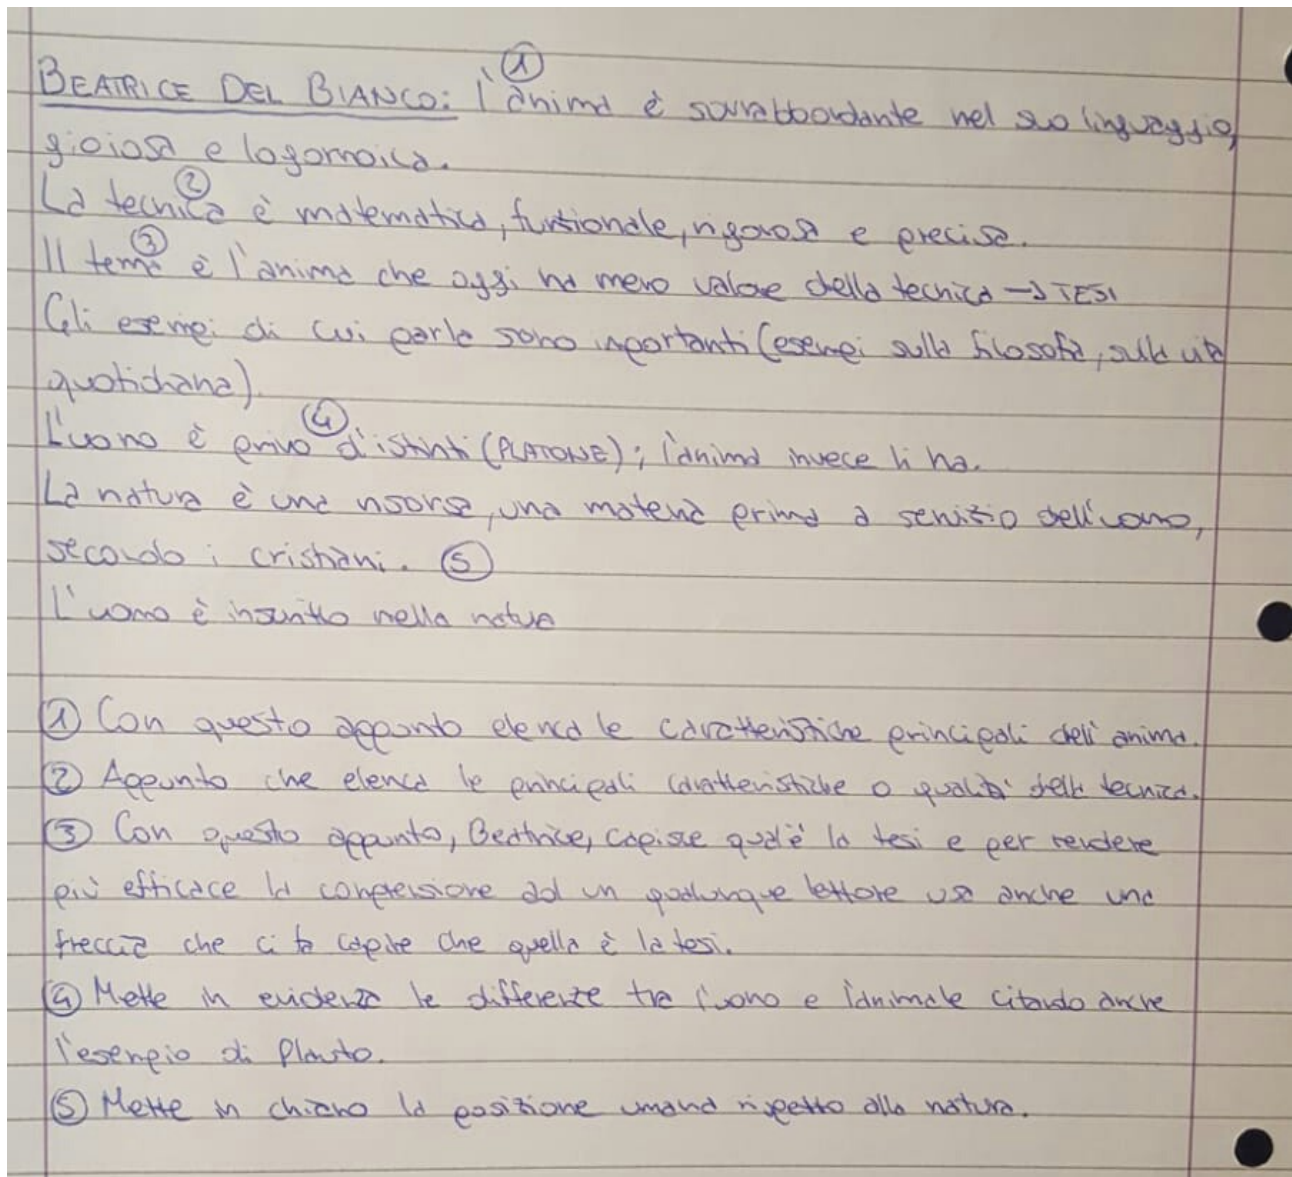 BEATRICE DEL BIANCO: l'anima ① è sovrabbondante nel suo linguaggio,
gioiosa e logorroica.
La tecnica ② è matematica, funzionale, rigorosa e precisa.
Il tema ③ è l'anima che oggi ha meno valore della tecnica → TESI
Gli esempi di cui parla sono importanti (esempi sulla filosofia, sulla vita
quotidiana).
L'uomo è privo ④ d'istinti (PLATONE); l'anima invece li ha.
La natura è una risorsa, una materia prima a servizio dell'uomo,
secondo i cristiani. ⑤
L'uomo è inscritto nella natura
① Con questo appunto elenca le caratteristiche principali dell'anima.
② Appunto che elenca le principali caratteristiche o qualità della tecnica.
③ Con questo appunto, Beatrice, capisce qual'è la tesi e per rendere
più efficace la comprensione ad un qualunque lettore usa anche una
freccia che ci fa capire che quella è la tesi.
④ Mette in evidenza le differenze tra l'uomo e l'animale citando anche
l'esempio di Plauto.
⑤ Mette in chiaro la posizione umana rispetto alla natura.